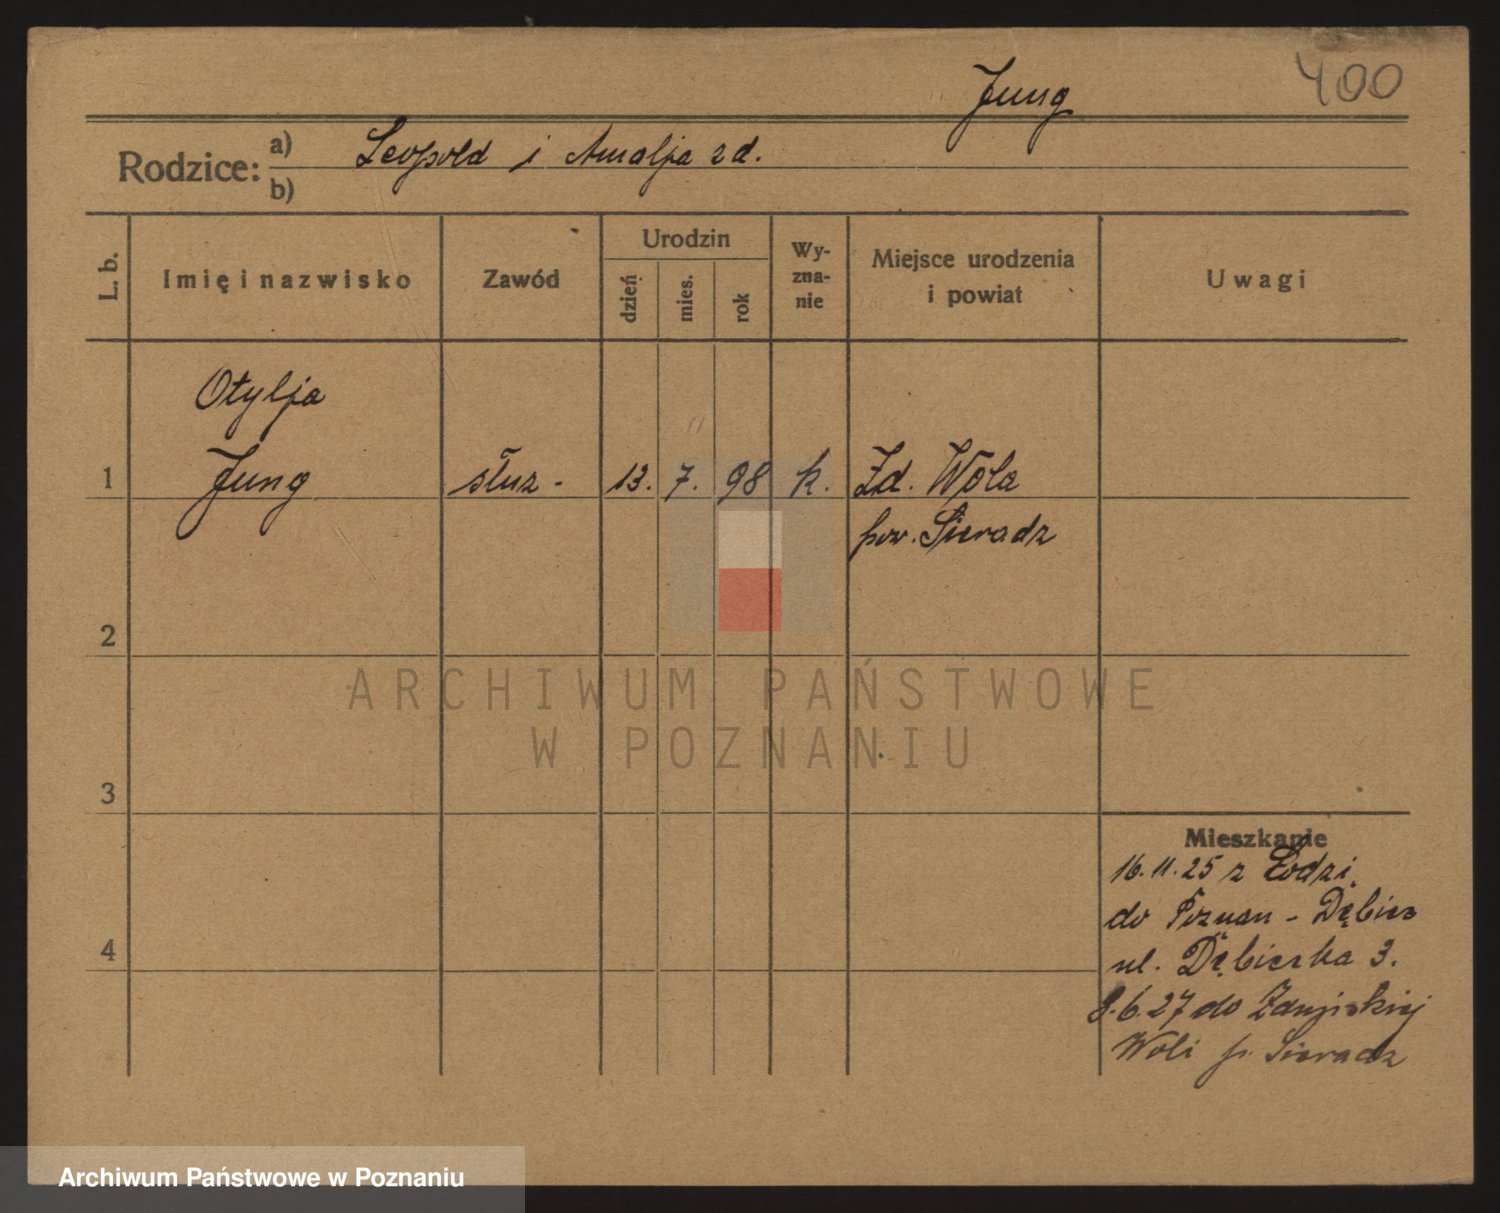 Jung
400
Rodzice: a) Leopold i Amalja zd.
b)
L. b.
Imię i nazwisko
Zawód
Urodzin
dzień
mies.
rok
Wy-
zna-
nie
Miejsce urodzenia
i powiat
Uwagi
Otylja
1 Jung służ - 13. 7. 98 k. Zd. Wola
pow. Sieradz
2
3
4
Mieszkanie
16.11.25 z Łodzi
do Poznań - Dębiec
ul. Dębiecka 3.
8.6.27 do Zduńskiej
Woli p. Sieradz
ARCHIWUM PAŃSTWOWE
W POZNANIU
Archiwum Państwowe w Poznaniu